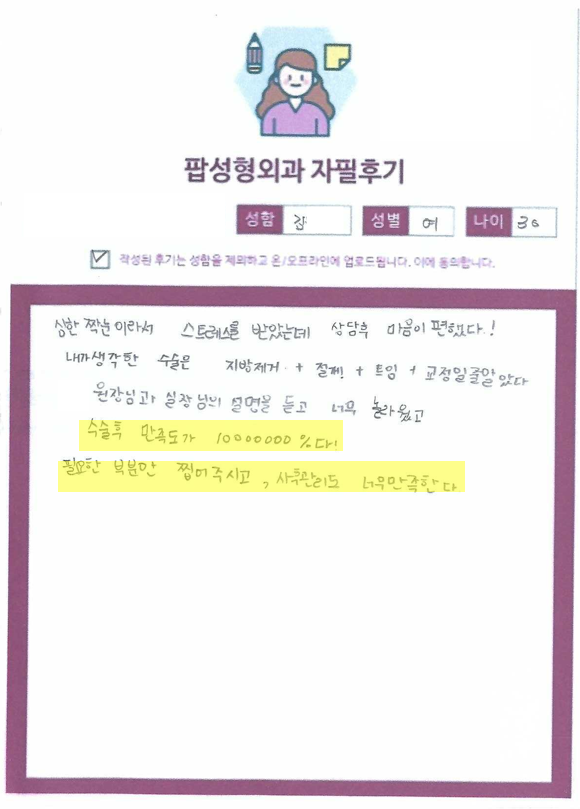 팝성형외과 자필후기
성함 강 성별 여 나이 30
작성된 후기는 성함을 제외하고 온/오프라인에 업로드됩니다. 이에 동의합니다.
심한 짝눈이라서 스트레스를 받았는데 상담후 마음이 편했다.!
내가생각한 수술은 지방제거 + 절개 + 트임 + 교정일줄알았다
원장님과 실장님의 설명을 듣고 너무 놀라웠고
수술후 만족도가 10000000%다!
필요한 부분만 찝어주시고, 사후관리도 너무만족한다